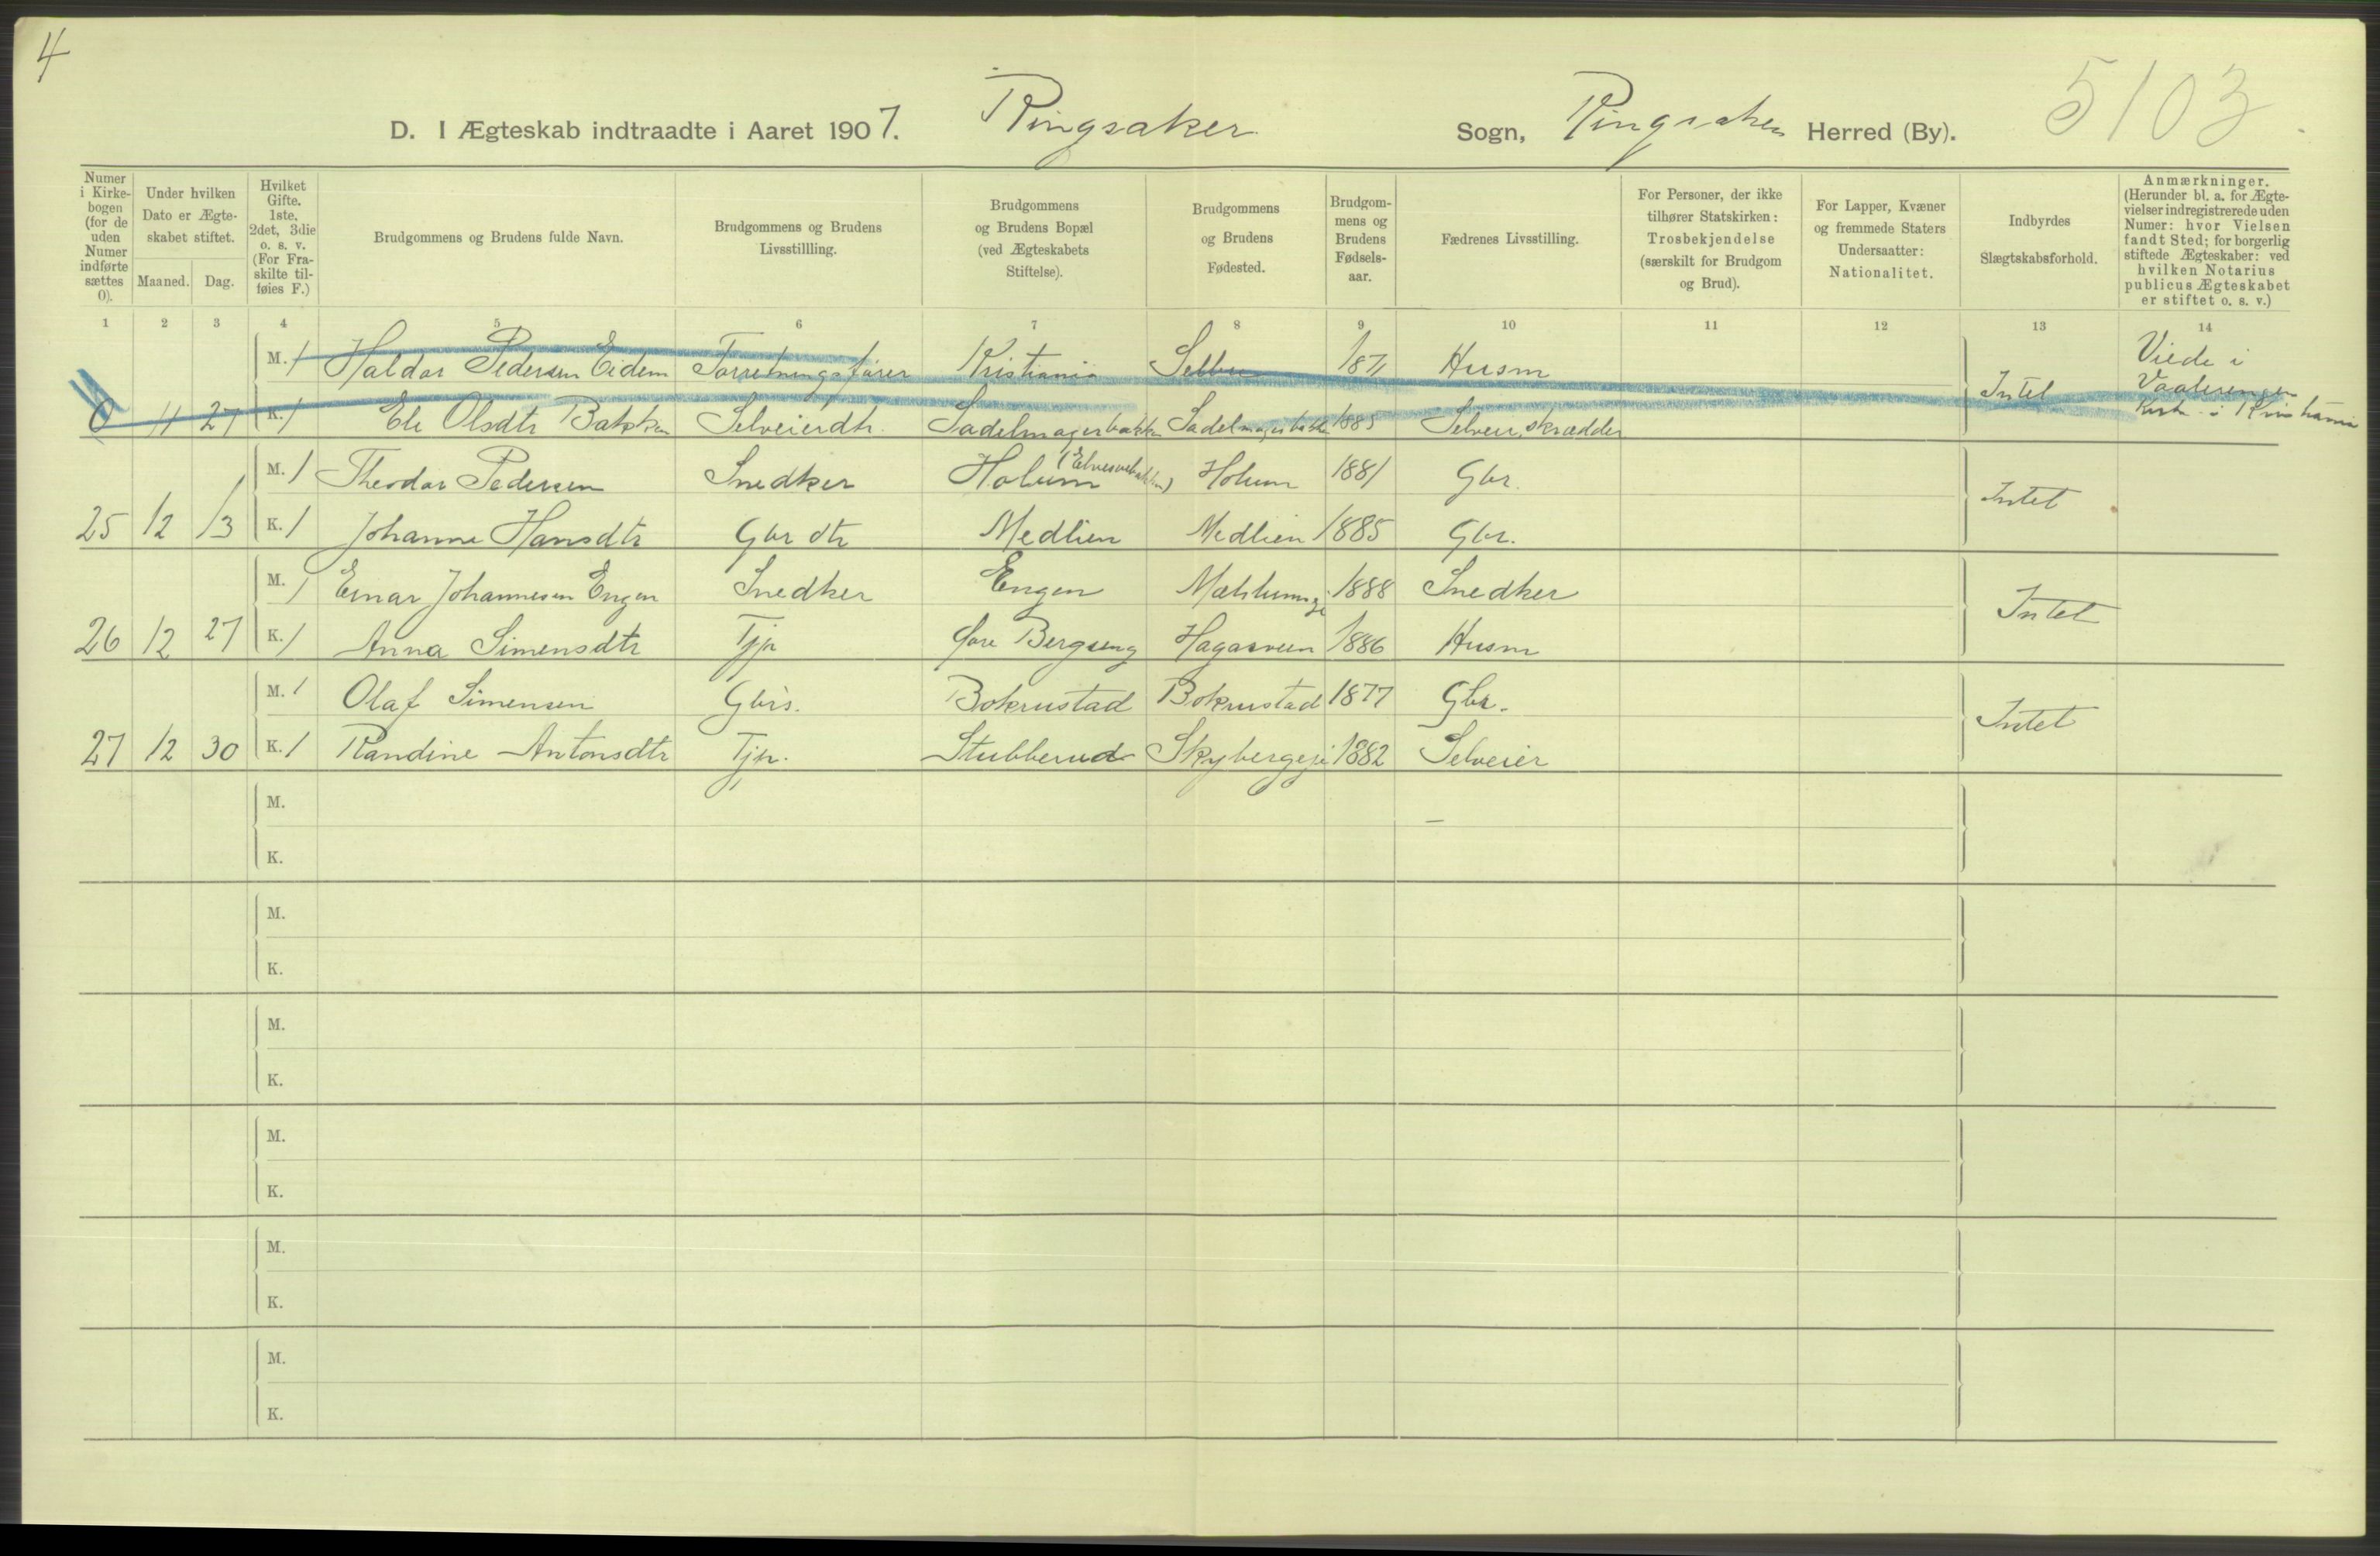 4
D. I Ægteskab indtraadte i Aaret 1907. Ringsaker Sogn, Ringsaker Herred (By). 5103
Numer i Kirkebogen (for de uden Numer indførte sættes 0).
Under hvilken Dato er Ægteskabet stiftet.
Maaned. Dag.
Hvilket Gifte. 1ste, 2det, 3die o. s. v. (For Fraskilte tilføies F.)
Brudgommens og Brudens fulde Navn.
Brudgommens og Brudens Livsstillling.
Brudgommens og Brudens Bopæl (ved Ægteskabets Stiftelse).
Brudgommens og Brudens Fødested.
Brudgommens og Brudens Fødselsaar.
Fædrenes Livsstilling.
For Personer, der ikke tilhører Statskirken: Trosbekjendelse (særskilt for Brudgom og Brud).
For Lapper, Kvæner og fremmede Staters Undersaatter: Nationalitet.
Indbyrdes Slægtskabsforhold.
Anmærkninger. (Herunder bl. a. for Ægtevielser indregistrerede uden Numer: hvor Vielsen fandt Sted; for borgerlig stiftede Ægteskaber: ved hvilken Notarius publicus Ægteskabet er stiftet o. s. v.)
1 2 3 4 5 6 7 8 9 10 11 12 13 14
M. 1 Haldor Pedersen Eidem Forretningsfører Kristiania Selbu 1871 Husm
0 11 27 K. 1 Eli Olsdtr Bakken Selveierdtr. Sadelmagerbakken Sadelmagerbakken 1885 Selveier, skrædder
Intet
Viede i
Vaalerengen
Kirk. i Kristiania
M. 1 Theodor Pedersen Snedker Holum 1881 Gbr.
Holum
25 12 13 K. 1 Johanne Hansdtr Gbr dtr Medlien Medlien 1885 Gbr.
Intet
M. 1 Einar Johannesen Engen Snedker Engen 1888 Snedker
26 12 27 K. 1 Anna Simensdtr Tjp Bergseng Hagasveen 1886 Husm
Intet
M. 1 Olaf Simensen Gbrs. Bokrustad Bokrustad 1877 Gbr.
27 12 30 K. 1 Randine Antonsdtr Tjp. Stubberud Skybergeje 1882 Selveier
Intet
M.
K.
M.
K.
M.
K.
M.
K.
M.
K.
M.
K.